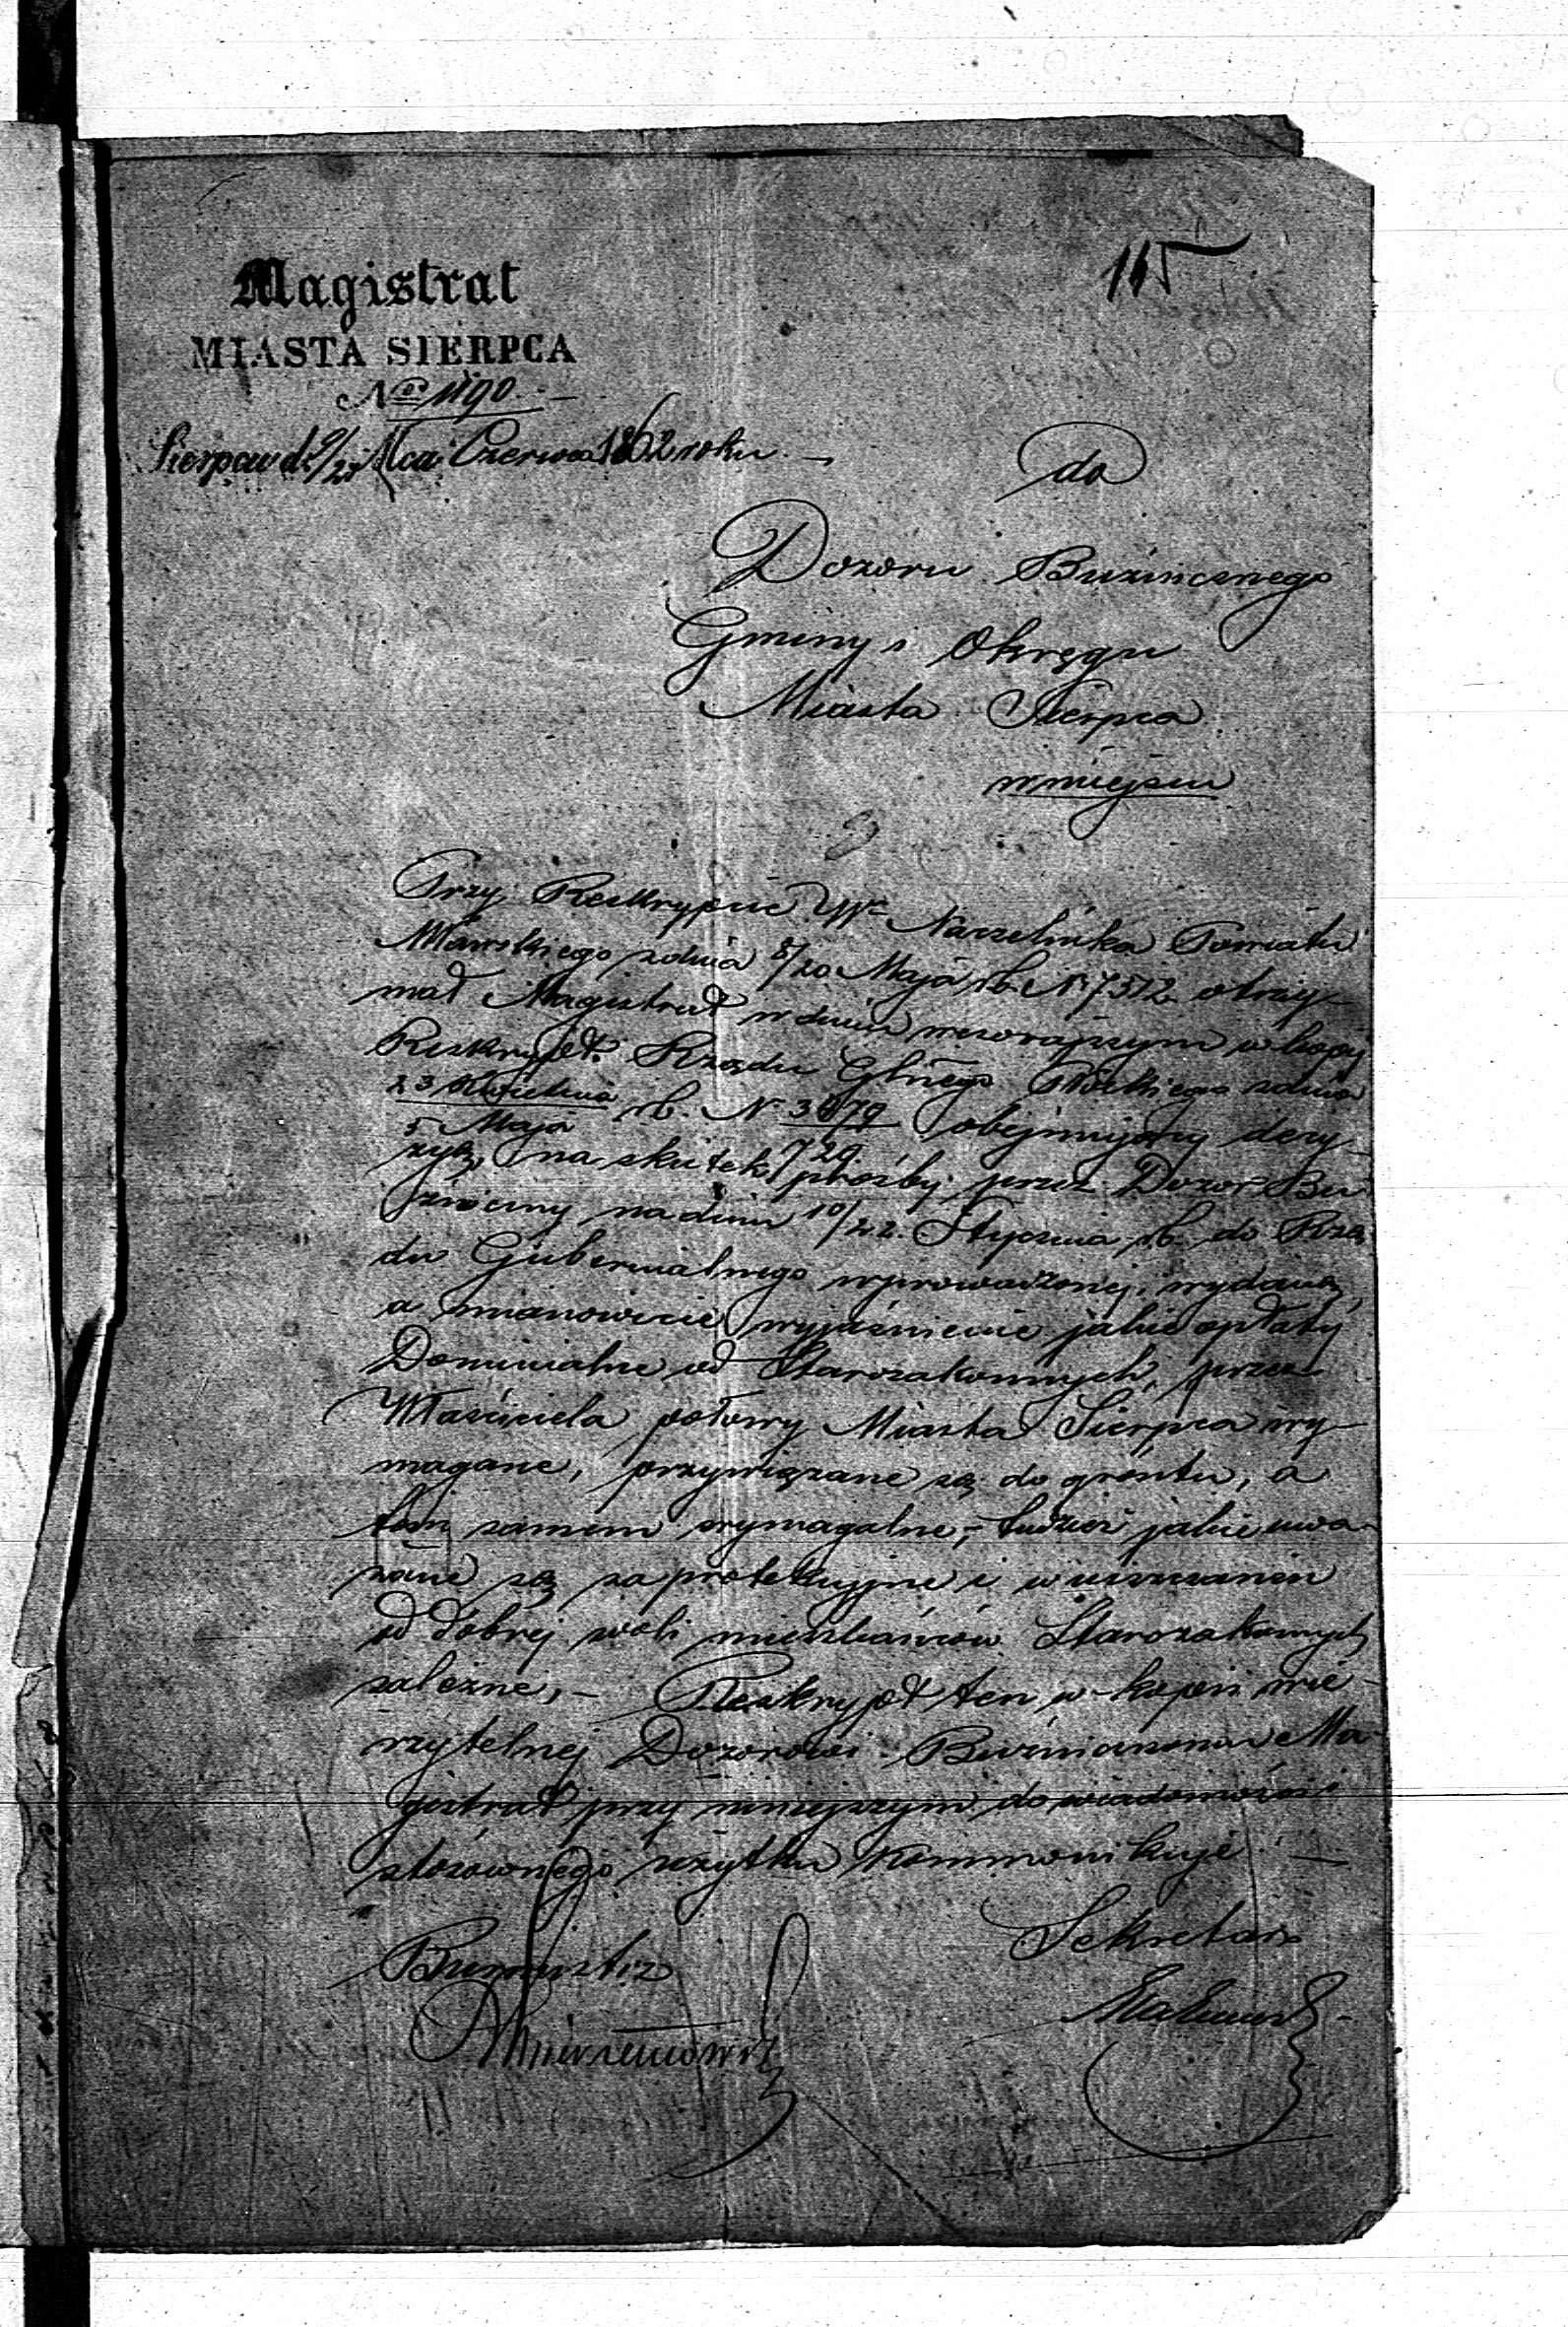 165
Magistrat
MIASTA SIERPCA
No 1190.
Sierpcu d. 9/21 Mca Czerwca 1862 roku.
do
Dozoru Bużnicznego
Gminy i Okręgu
Miasta Sierpca
w miejscu
Przy Reskrypcie Wo Naczelnika Powiatu
Mławskiego z dnia 8/20 Maja rb. N. 7512 otrzy-
mał Magistrat w dniu wczorajszym w kopij
Reskrypt Rządu Gblnego Płockiego z dnia
23 Kwietnia/5 Maja rb. N. /729 obejmujący decy-
zyą, na skutek prośby przez Dozór Bu-
żniczny na dniu 10/22 Stycznia rb. do Rzą-
du Gubernialnego wprowadzonej, wydaną,
a mianowicie wyjaśnienie jakie opłaty
Dominialne od Starozakonnych, przez
Właściciela połowy Miasta Sierpca wy-
magane, przywiązane są do gróntu, a
tem samem wymagalne, - tudzież jakie uwa-
żane są za protekcyjne i w uiszczaniu
od dobrej woli mieszkańców Starozakonnych
zależne, - Reskrypt ten w kopii wie-
rzytelnej Dozorowi Bużnicznemu Ma-
gistrat przy niniejszym do wiadomości i
stósownego użytku kommonikuje. -
Burmistrz
Sekretarz